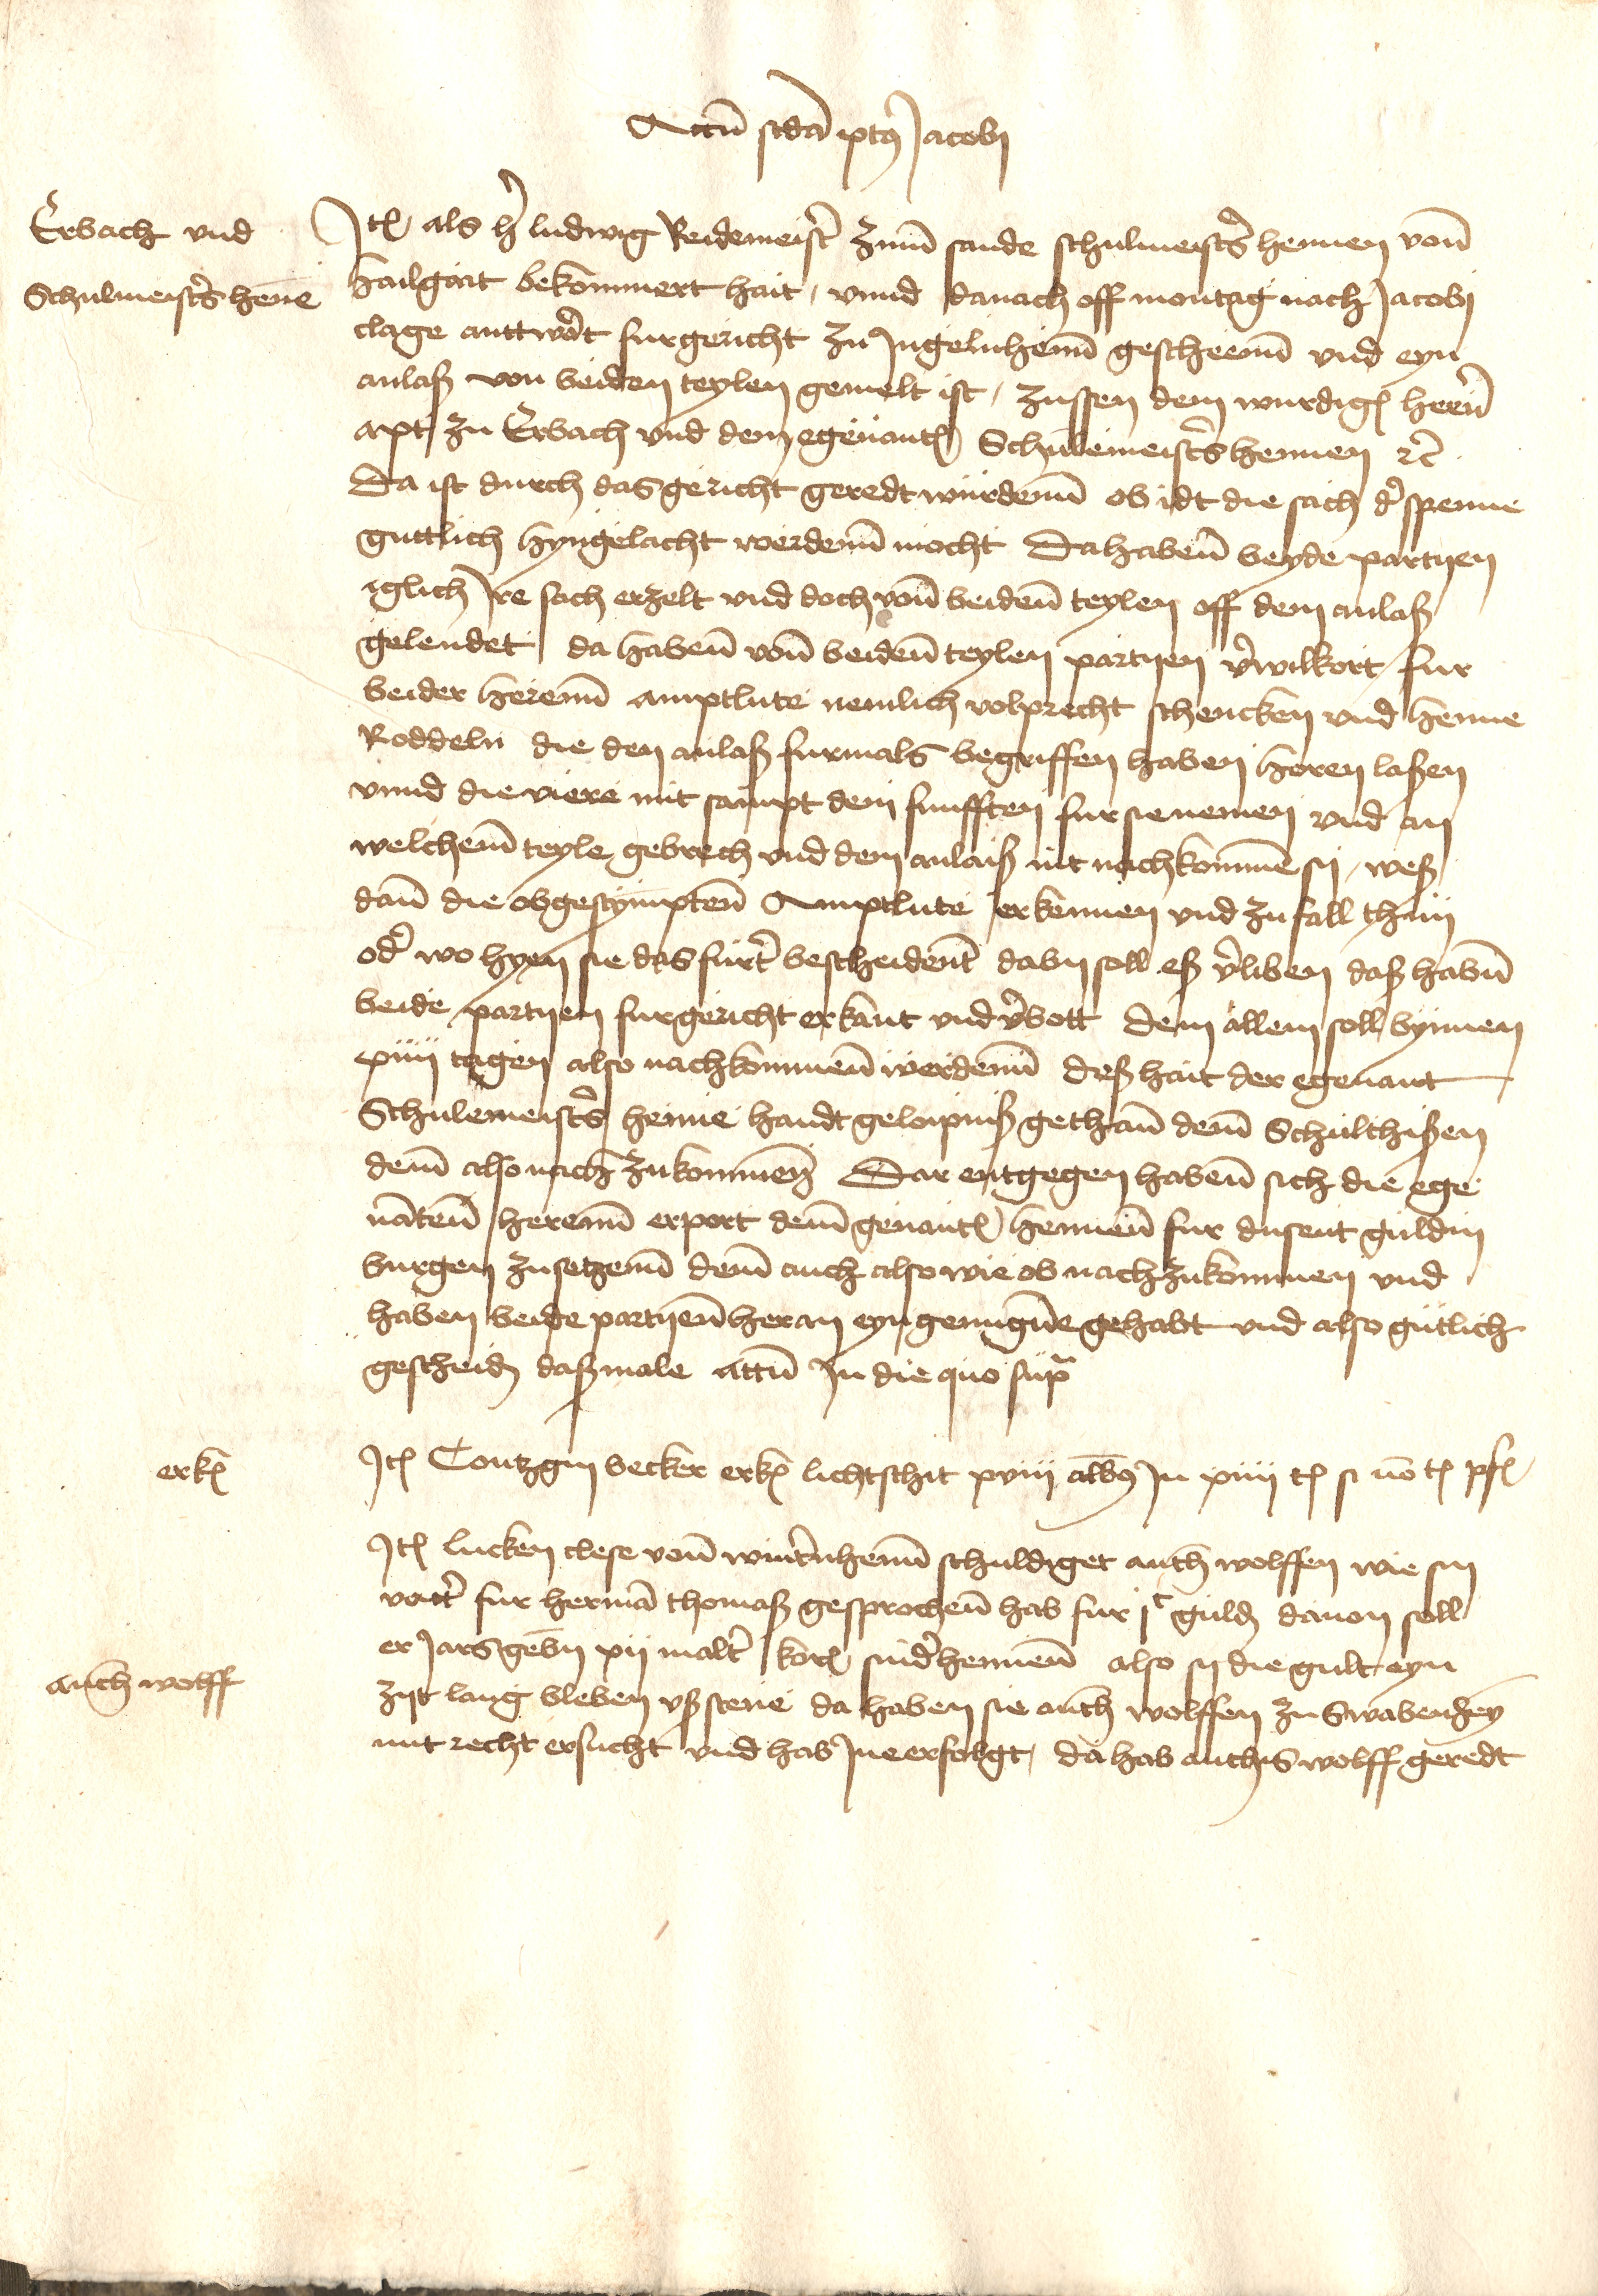 Actu͂ s͂cda p͂t9 Jacobi
Erbach und
Schulmeist͛s hen͂e
Jt͂ als h͛ ludwig Reidemeist͛ zum͂ sande schulmeist͛s hennen von͂
Hailgart bekommert hait / vnnd danach off montag nach Jacobi
clage anttw͛t fur gericht zu Jngelnheim͂ gescheem͂ vnd eyn
anlaß von beidden teylen gemelt ist / zussen dem wurdig͂ hern͂
apt zu Erbach vnd dem egenant͂ Schulemeist͛s hennen ꝛc͂
Da ist durch das gericht geredt wurdenn͂ ob idt die sach d͛ spenne
guttlich hyngelacht werdenn͂ mocht Da haben͂ beyde partijen
iglich Jre sach erzelt vnd doch von͂ beiden͂ teylen off dem anlaß
gelendet da haben͂ von͂ beiden͂ teylen partijen v͛wilkort / fur
beider herenn͂ amptlute nemlich volprecht schencken vnd Henne
Roddeln die den anlaß furmals begriffen haben horen laßen
vnnd die viere mit sampt dem funfften fur sie nemen vnd an
welchem͂ teyle gebrech vnd dem anlaiß nit nachkomme͂ sij / weß
dan͂ die obgestympten͂ Amptlute erkennen vnd zu fall thun
od͛ wo hyen sie das furt͛ bescheident͂ dabij soll eß v͛liben daß habn͂
beide partijen fur gericht erkant vnd v͛bott dem allem soll bynnen
xiiij tagen also nachkommen͂ werdenn͂ deß hait der egenant
Schulemeist͛s henne handt geloipniß gethan͂ dem͂ Schultheißen
dem͂ also nach zukommen͂ Dar entgegen haben͂ sich die ege
na͂ten͂ herenn͂ erport dem͂ genant͂ hennen͂ fur dusent guldin
burgen zusetzenn͂ dem͂ auch also wie ob nach zukommen vnd
haben beide partijen͂ heran eyn genug͂ne gehabt vnd also gutlich
gescheid͂ daßmale actu͂ Jn die quo sup͂ra
erk͂
Jt͂ Contzgin becker erk͂ lichtschit xviij alb9 Jn xiiij t͂ si no͂ t͂ pf͂
Jt͂ lucken clese von͂ wint͛nheim͂ schuldiget anth͂ wolffen wie sin
vatt͛ fur herma͂ thomaß gesprochen͂ hab fur j c guld͂ dauon soll
er Jars gebn͂ xij malt͛ kor͂ sind͛ hennen͂ also sij die gult eyn
anth͂ wolff
zijt lang bleben vßstene da haben sie anth͂ wolffen zu Swabenh͂ey
mit recht ersucht vnd hab Jne erfolgt / da hab anthis wolff geredt